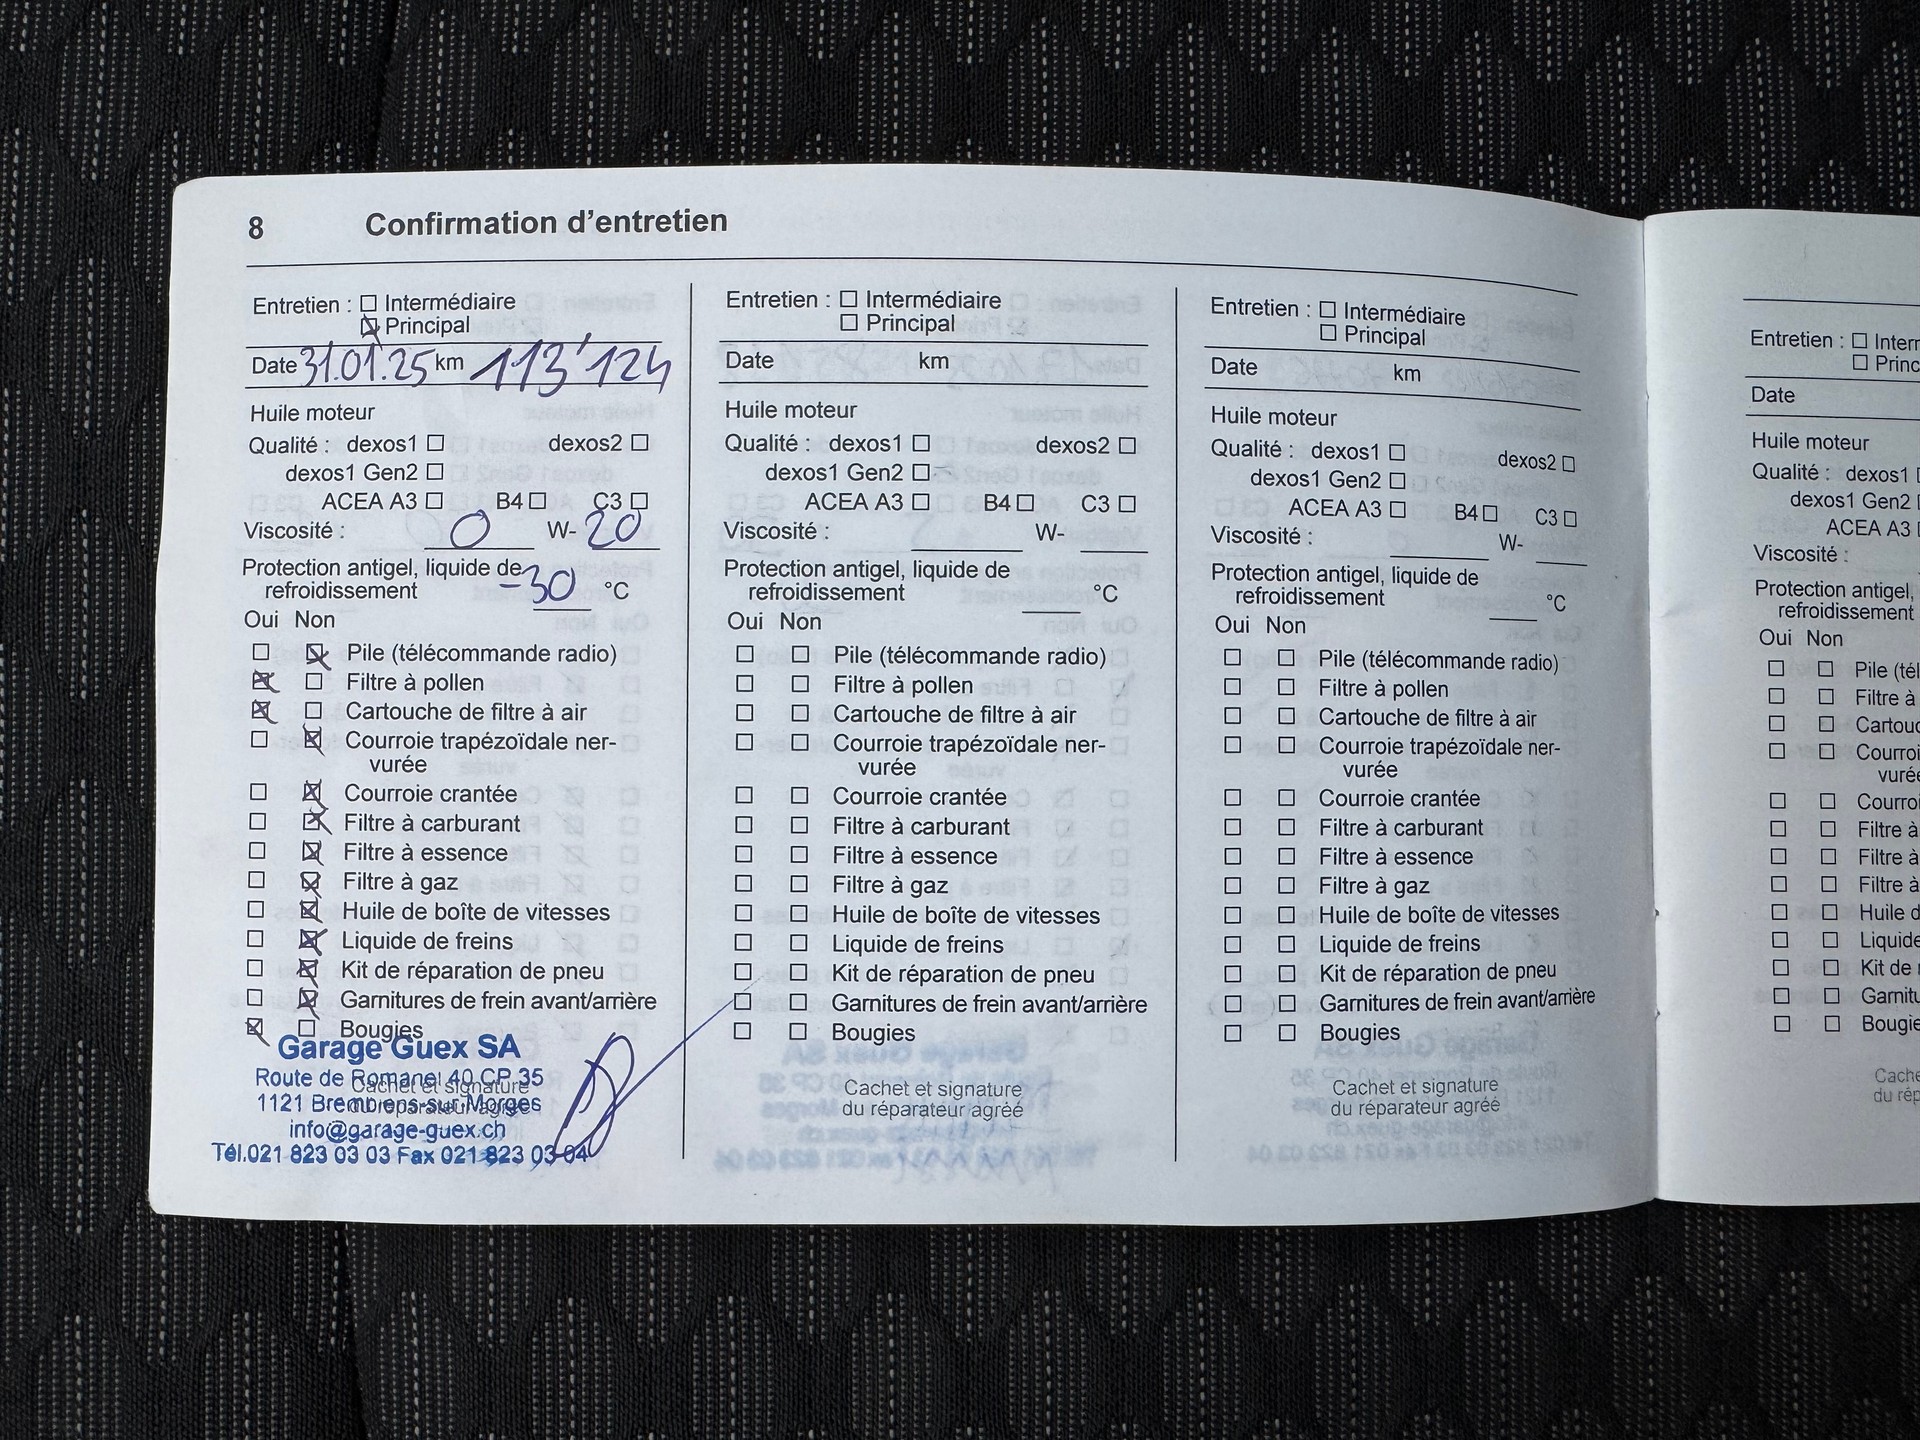 8 Confirmation d'entretien
Entretien : ☐ Intermédiaire
☒ Principal
Date 31.01.25 km 113'124
Huile moteur
Qualité : dexos1 ☐ dexos2 ☐
dexos1 Gen2 ☐
ACEA A3 ☐ B4 ☐ C3 ☐
Viscosité : 0 W- 20
Protection antigel, liquide de
refroidissement -30 °C
Oui Non
☐ ☒ Pile (télécommande radio)
☒ ☐ Filtre à pollen
☒ ☐ Cartouche de filtre à air
☐ ☒ Courroie trapézoïdale ner-
vurée
☐ ☒ Courroie crantée
☐ ☒ Filtre à carburant
☐ ☒ Filtre à essence
☐ ☒ Filtre à gaz
☐ ☒ Huile de boîte de vitesses
☐ ☒ Liquide de freins
☐ ☒ Kit de réparation de pneu
☐ ☒ Garnitures de frein avant/arrière
☒ ☐ Bougies
Garage Guex SA
Route de Romanel 40 CP 35
1121 Bremblens-sur-Morges
info@garage-guex.ch
Tél.021 823 03 03 Fax 021 823 03 04
Cachet et signature
du réparateur agréé
Entretien : ☐ Intermédiaire
☐ Principal
Date km
Huile moteur
Qualité : dexos1 ☐ dexos2 ☐
dexos1 Gen2 ☐
ACEA A3 ☐ B4 ☐ C3 ☐
Viscosité : W-
Protection antigel, liquide de
refroidissement °C
Oui Non
☐ ☐ Pile (télécommande radio)
☐ ☐ Filtre à pollen
☐ ☐ Cartouche de filtre à air
☐ ☐ Courroie trapézoïdale ner-
vurée
☐ ☐ Courroie crantée
☐ ☐ Filtre à carburant
☐ ☐ Filtre à essence
☐ ☐ Filtre à gaz
☐ ☐ Huile de boîte de vitesses
☐ ☐ Liquide de freins
☐ ☐ Kit de réparation de pneu
☐ ☐ Garnitures de frein avant/arrière
☐ ☐ Bougies
Cachet et signature
du réparateur agréé
Entretien : ☐ Intermédiaire
☐ Principal
Date km
Huile moteur
Qualité : dexos1 ☐ dexos2 ☐
dexos1 Gen2 ☐
ACEA A3 ☐ B4 ☐ C3 ☐
Viscosité : W-
Protection antigel, liquide de
refroidissement °C
Oui Non
☐ ☐ Pile (télécommande radio)
☐ ☐ Filtre à pollen
☐ ☐ Cartouche de filtre à air
☐ ☐ Courroie trapézoïdale ner-
vurée
☐ ☐ Courroie crantée
☐ ☐ Filtre à carburant
☐ ☐ Filtre à essence
☐ ☐ Filtre à gaz
☐ ☐ Huile de boîte de vitesses
☐ ☐ Liquide de freins
☐ ☐ Kit de réparation de pneu
☐ ☐ Garnitures de frein avant/arrière
☐ ☐ Bougies
Cachet et signature
du réparateur agréé
Entretien : ☐ Interr
☐ Princ
Date
Huile moteur
Qualité : dexos1
dexos1 Gen2
ACEA A3
Viscosité :
Protection antigel,
refroidissement
Oui Non
☐ ☐ Pile (tél
☐ ☐ Filtre à
☐ ☐ Cartouc
☐ ☐ Courroi
vurée
☐ ☐ Courroi
☐ ☐ Filtre à
☐ ☐ Filtre à
☐ ☐ Filtre à
☐ ☐ Huile d
☐ ☐ Liquide
☐ ☐ Kit de
☐ ☐ Garnitu
☐ ☐ Bougie
Cache
du rép